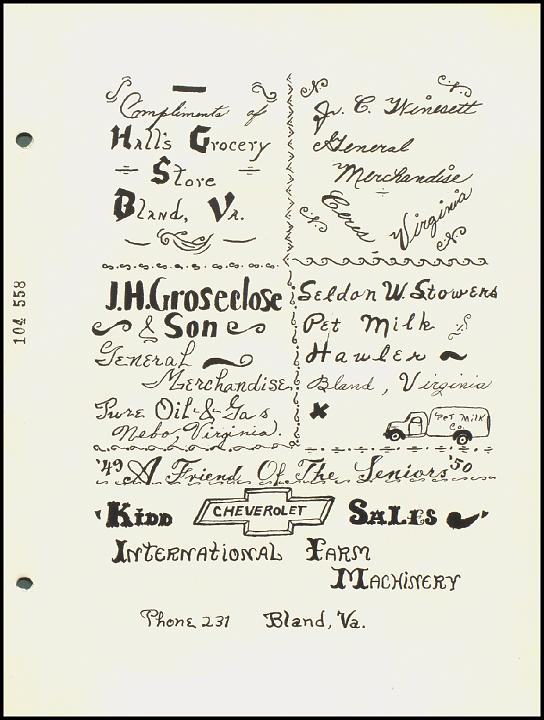 Compliments of
Hall's Grocery
Store
Bland, Va.
Jr. C. Winesett
General
Merchandise
Ceres Virginia
J.H. Groseclose
& Son
General
Merchandise
Pure Oil & Gas
Nebo, Virginia.
Seldon W. Stowers
Pet Milk
Hawler
Bland, Virginia
Pet Milk
Co.
'49 A Friend Of The Seniors '50
Kidd CHEVEROLET Sales
International Farm
Machinery
Phone 231 Bland, Va.
104 558